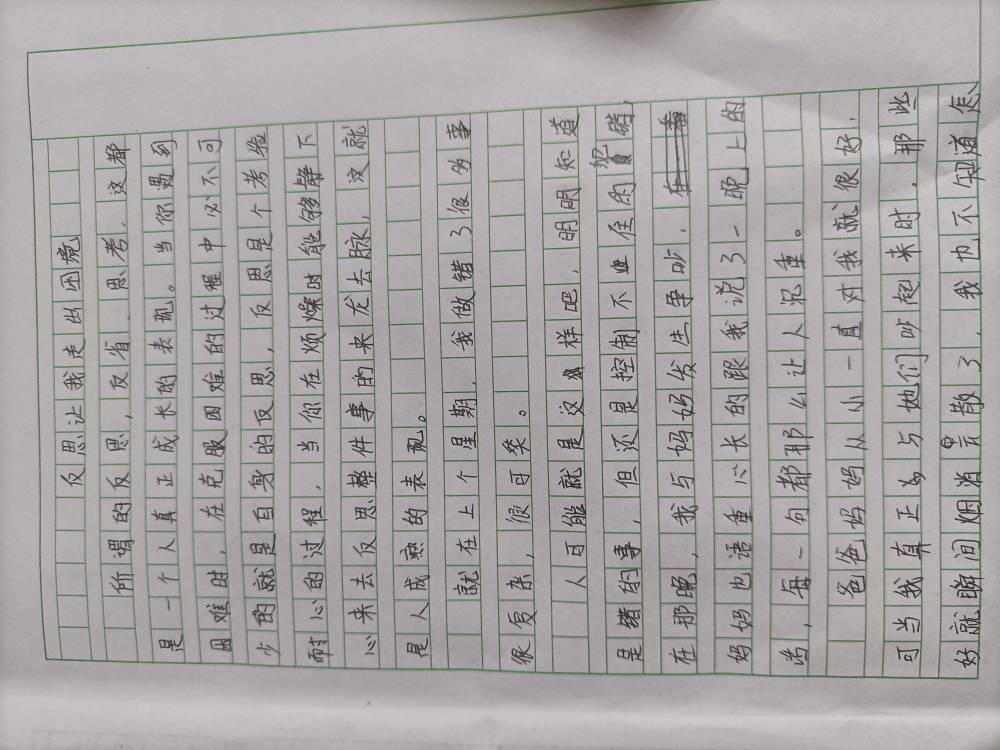 反思让我走出困境
所谓的反思，反省、思考，这都
是一个人真正成长的表现。当你遇到
困难时，在克服困难的过程中必不可
少的就是自身的反思，反思是个考验
耐心的过程，当你在烦燥时能够静下
心来去反思整件事的来龙去脉，这就
是人成熟的表现。
就在上个星期，我做错了很多事
很复杂，很可笑。
人可能就是这样吧，明明知道
是错的事，但还是控制不住的犯错，
在那晚，我与妈妈发生争吵，
妈妈也语重心长的跟我说了一晚上的
话，每一句都那么让人沉重。
爸爸妈妈从小一直对我就很好，
可当我真正与她们吵起来时，那些
好就瞬间烟消云散了，我也不知道怎